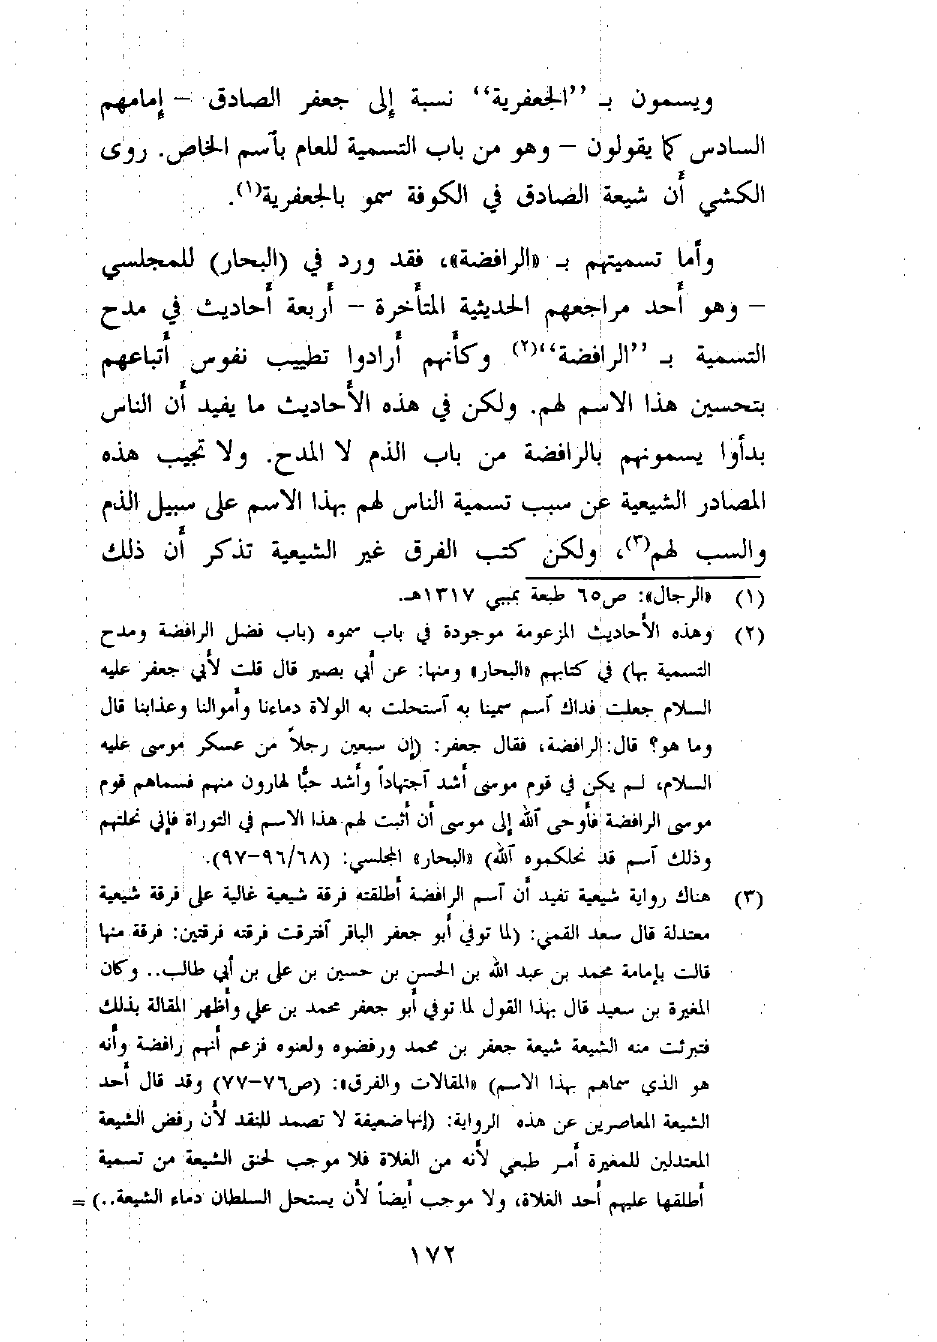 ويسمون بـ ’’الجعفرية‘‘ نسبة إلى جعفر الصادق – إمامهم
السادس كما يقولون – وهو من باب التسمية للعام بآسم الخاص. روى
الكشي أن شيعة الصادق في الكوفة سمو بالجعفرية(١).
وأما تسميتهم بـ «الرافضة»، فقد ورد في (البحار) للمجلسي
– وهو أحد مراجعهم الحديثية المتأخرة – أربعة أحاديث في مدح
التسمية بـ ’’الرافضة‘‘(٢) وكأنهم أرادوا تطييب نفوس أتباعهم
بتحسين هذا الاسم لهم. ولكن في هذه الأحاديث ما يفيد أن الناس
بدأوا يسمونهم بالرافضة من باب الذم لا المدح. ولا تجيب هذه
المصادر الشيعية عن سبب تسمية الناس لهم بهذا الاسم على سبيل الذم
والسب لهم(٣)، ولكن كتب الفرق غير الشيعية تذكر أن ذلك
(١) «الرجال»: ص٦٥ طبعة بمبي ١٣١٧هـ.
(٢) وهذه الأحاديث المزعومة موجودة في باب سموه (باب فضل الرافضة ومدح
التسمية بها) في كتابهم «البحار» ومنها: عن أبي بصير قال قلت لأبي جعفر عليه
السلام جعلت فداك آسم سمينا به آستحلت به الولاة دماءنا وأموالنا وعذابنا قال
وما هو؟ قال: الرافضة، فقال جعفر: (إن سبعين رجلاً من عسكر موسى عليه
السلام، لم يكن في قوم موسى أشد آجتهاداً وأشد حبًّا لهارون منهم فسماهم قوم
موسى الرافضة فأوحى آلله إلى موسى أن أثبت لهم هذا الاسم في التوراة فإني نحلتهم
وذلك آسم قد نحلكموه آلله) «البحار» المجلسي: (٩٦/٦٨–٩٧).
(٣) هناك رواية شيعية تفيد أن آسم الرافضة أطلقته فرقة شيعية غالية على فرقة شيعية
معتدلة قال سعد القمي: (لما توفي أبو جعفر الباقر آفترقت فرقته فرقتين: فرقة منها
قالت بإمامة محمد بن عبد الله بن الحسن بن حسين بن علي بن أبي طالب.. وكان
المغيرة بن سعيد قال بهذا القول لما توفي أبو جعفر محمد بن علي وأظهر المقالة بذلك
فتبرئت منه الشيعة شيعة جعفر بن محمد ورفضوه ولعنوه فزعم أنهم رافضة وأنه
هو الذي سماهم بهذا الاسم) «المقالات والفرق»: (ص٧٦–٧٧) وقد قال أحد
الشيعة المعاصرين عن هذه الرواية: (إنها ضعيفة لا تصمد للنقد لأن رفض الشيعة
المعتدلين للمغيرة أمر طبعي لأنه من الغلاة فلا موجب لحنق الشيعة من تسمية
أطلقها عليهم أحد الغلاة، ولا موجب أيضاً لأن يستحل السلطان دماء الشيعة..) =
١٧٢